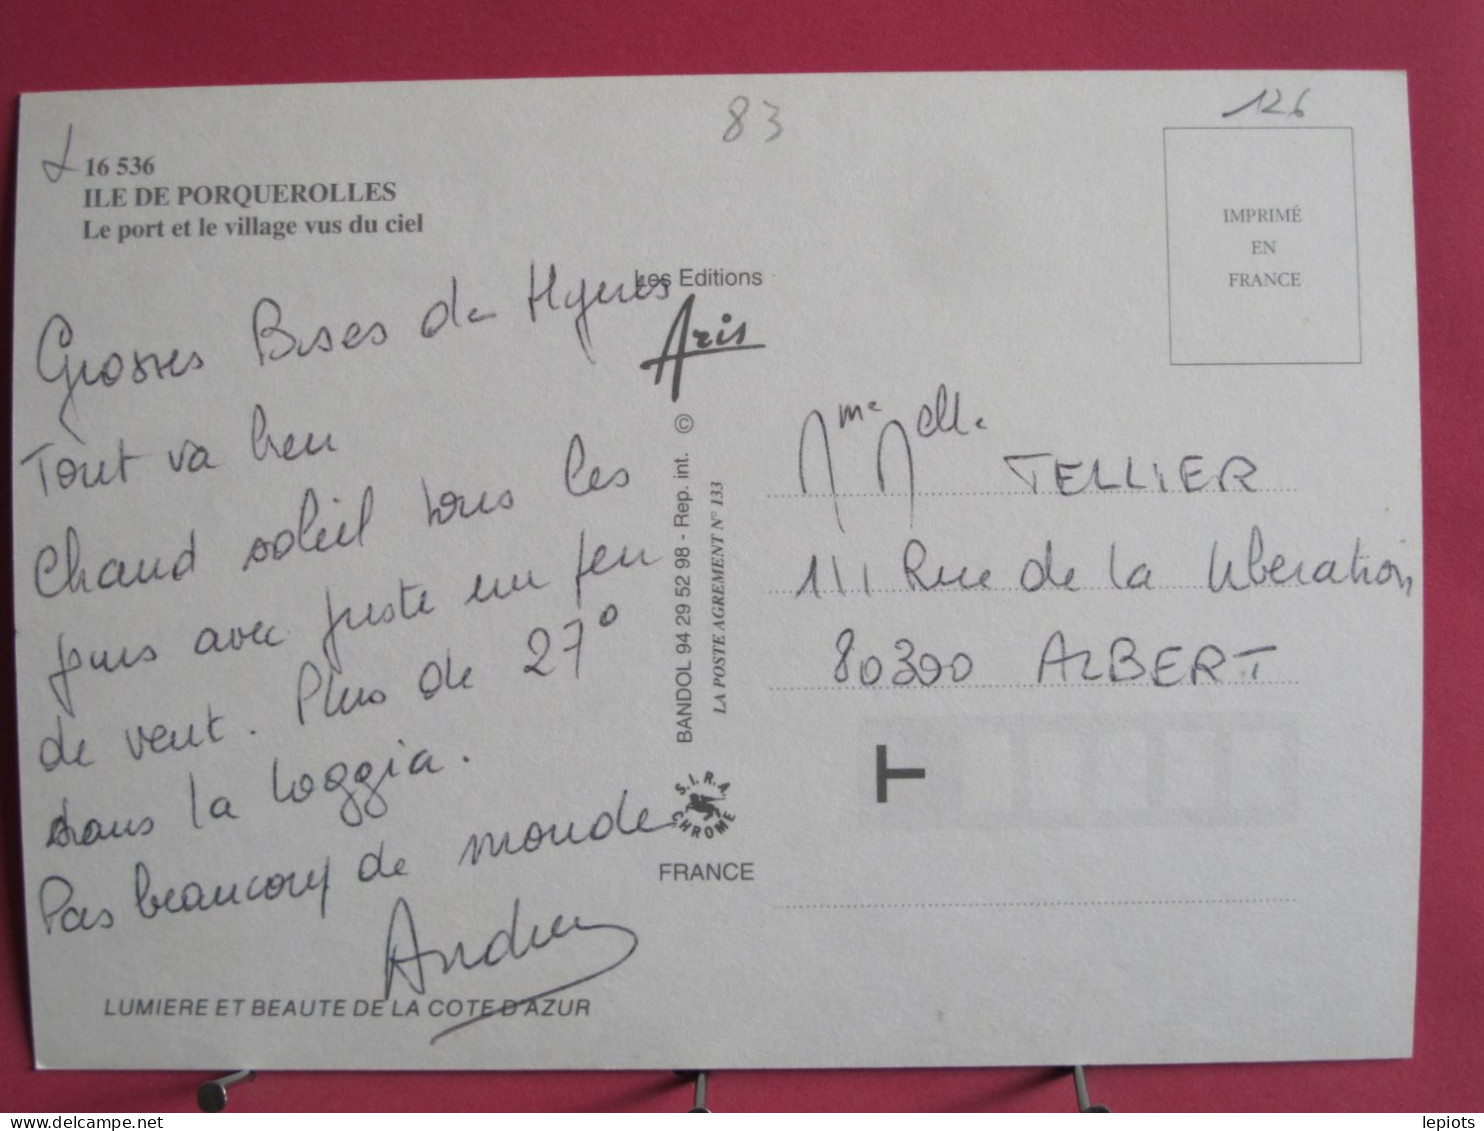 83
126
16 536
ILE DE PORQUEROLLES
Le port et le village vus du ciel
IMPRIMÉ
EN
FRANCE
Grosses Bises de Hyeres
Tout va bien
Chaud soleil tous les
jours avec juste un peu
de vent. Plus de 27°
dans la loggia.
Pas beaucoup de monde
Andrée
LUMIERE ET BEAUTE DE LA COTE D'AZUR
Les Editions
Aris
BANDOL 94 29 52 98 - Rep. int. ©
LA POSTE AGREMENT N° 133
S.I.R.A.
CHROME
FRANCE
Mme Melle
TELLIER
111 Rue de la libération
80300 ALBERT
T
lepiots